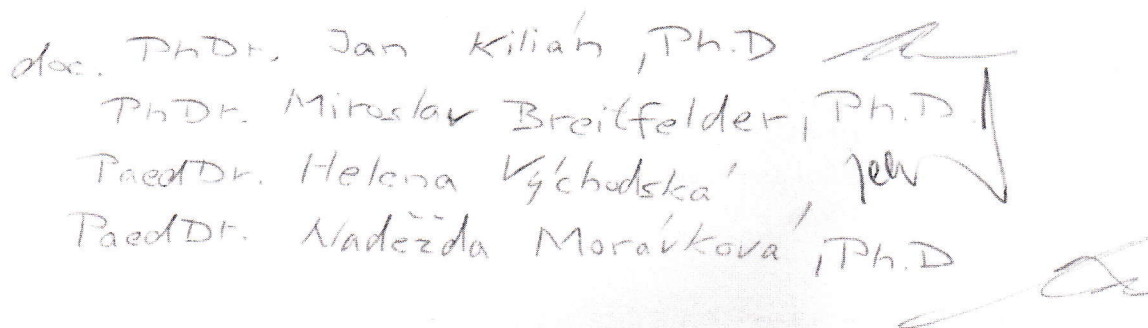 doc. PhDr. Jan Kilián, Ph.D
PhDr. Miroslav Breitfelder, Ph.D.
PaedDr. Helena Východská
PaedDr. Naděžda Morávková, Ph.D